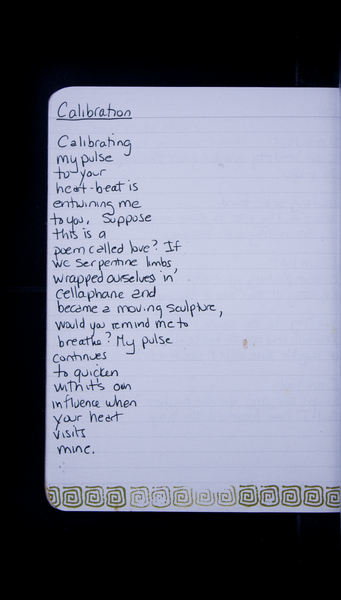 Calibration
Calibrating
my pulse
to your
heart-beat is
entwining me
to you. Suppose
this is a
poem called love? If
we serpentine limbs
wrapped ourselves in
cellaphane and
became a moving sculpture,
would you remind me to
breathe? My pulse
continues
to quicken
with its own
influence when
your heart
visits
mine.